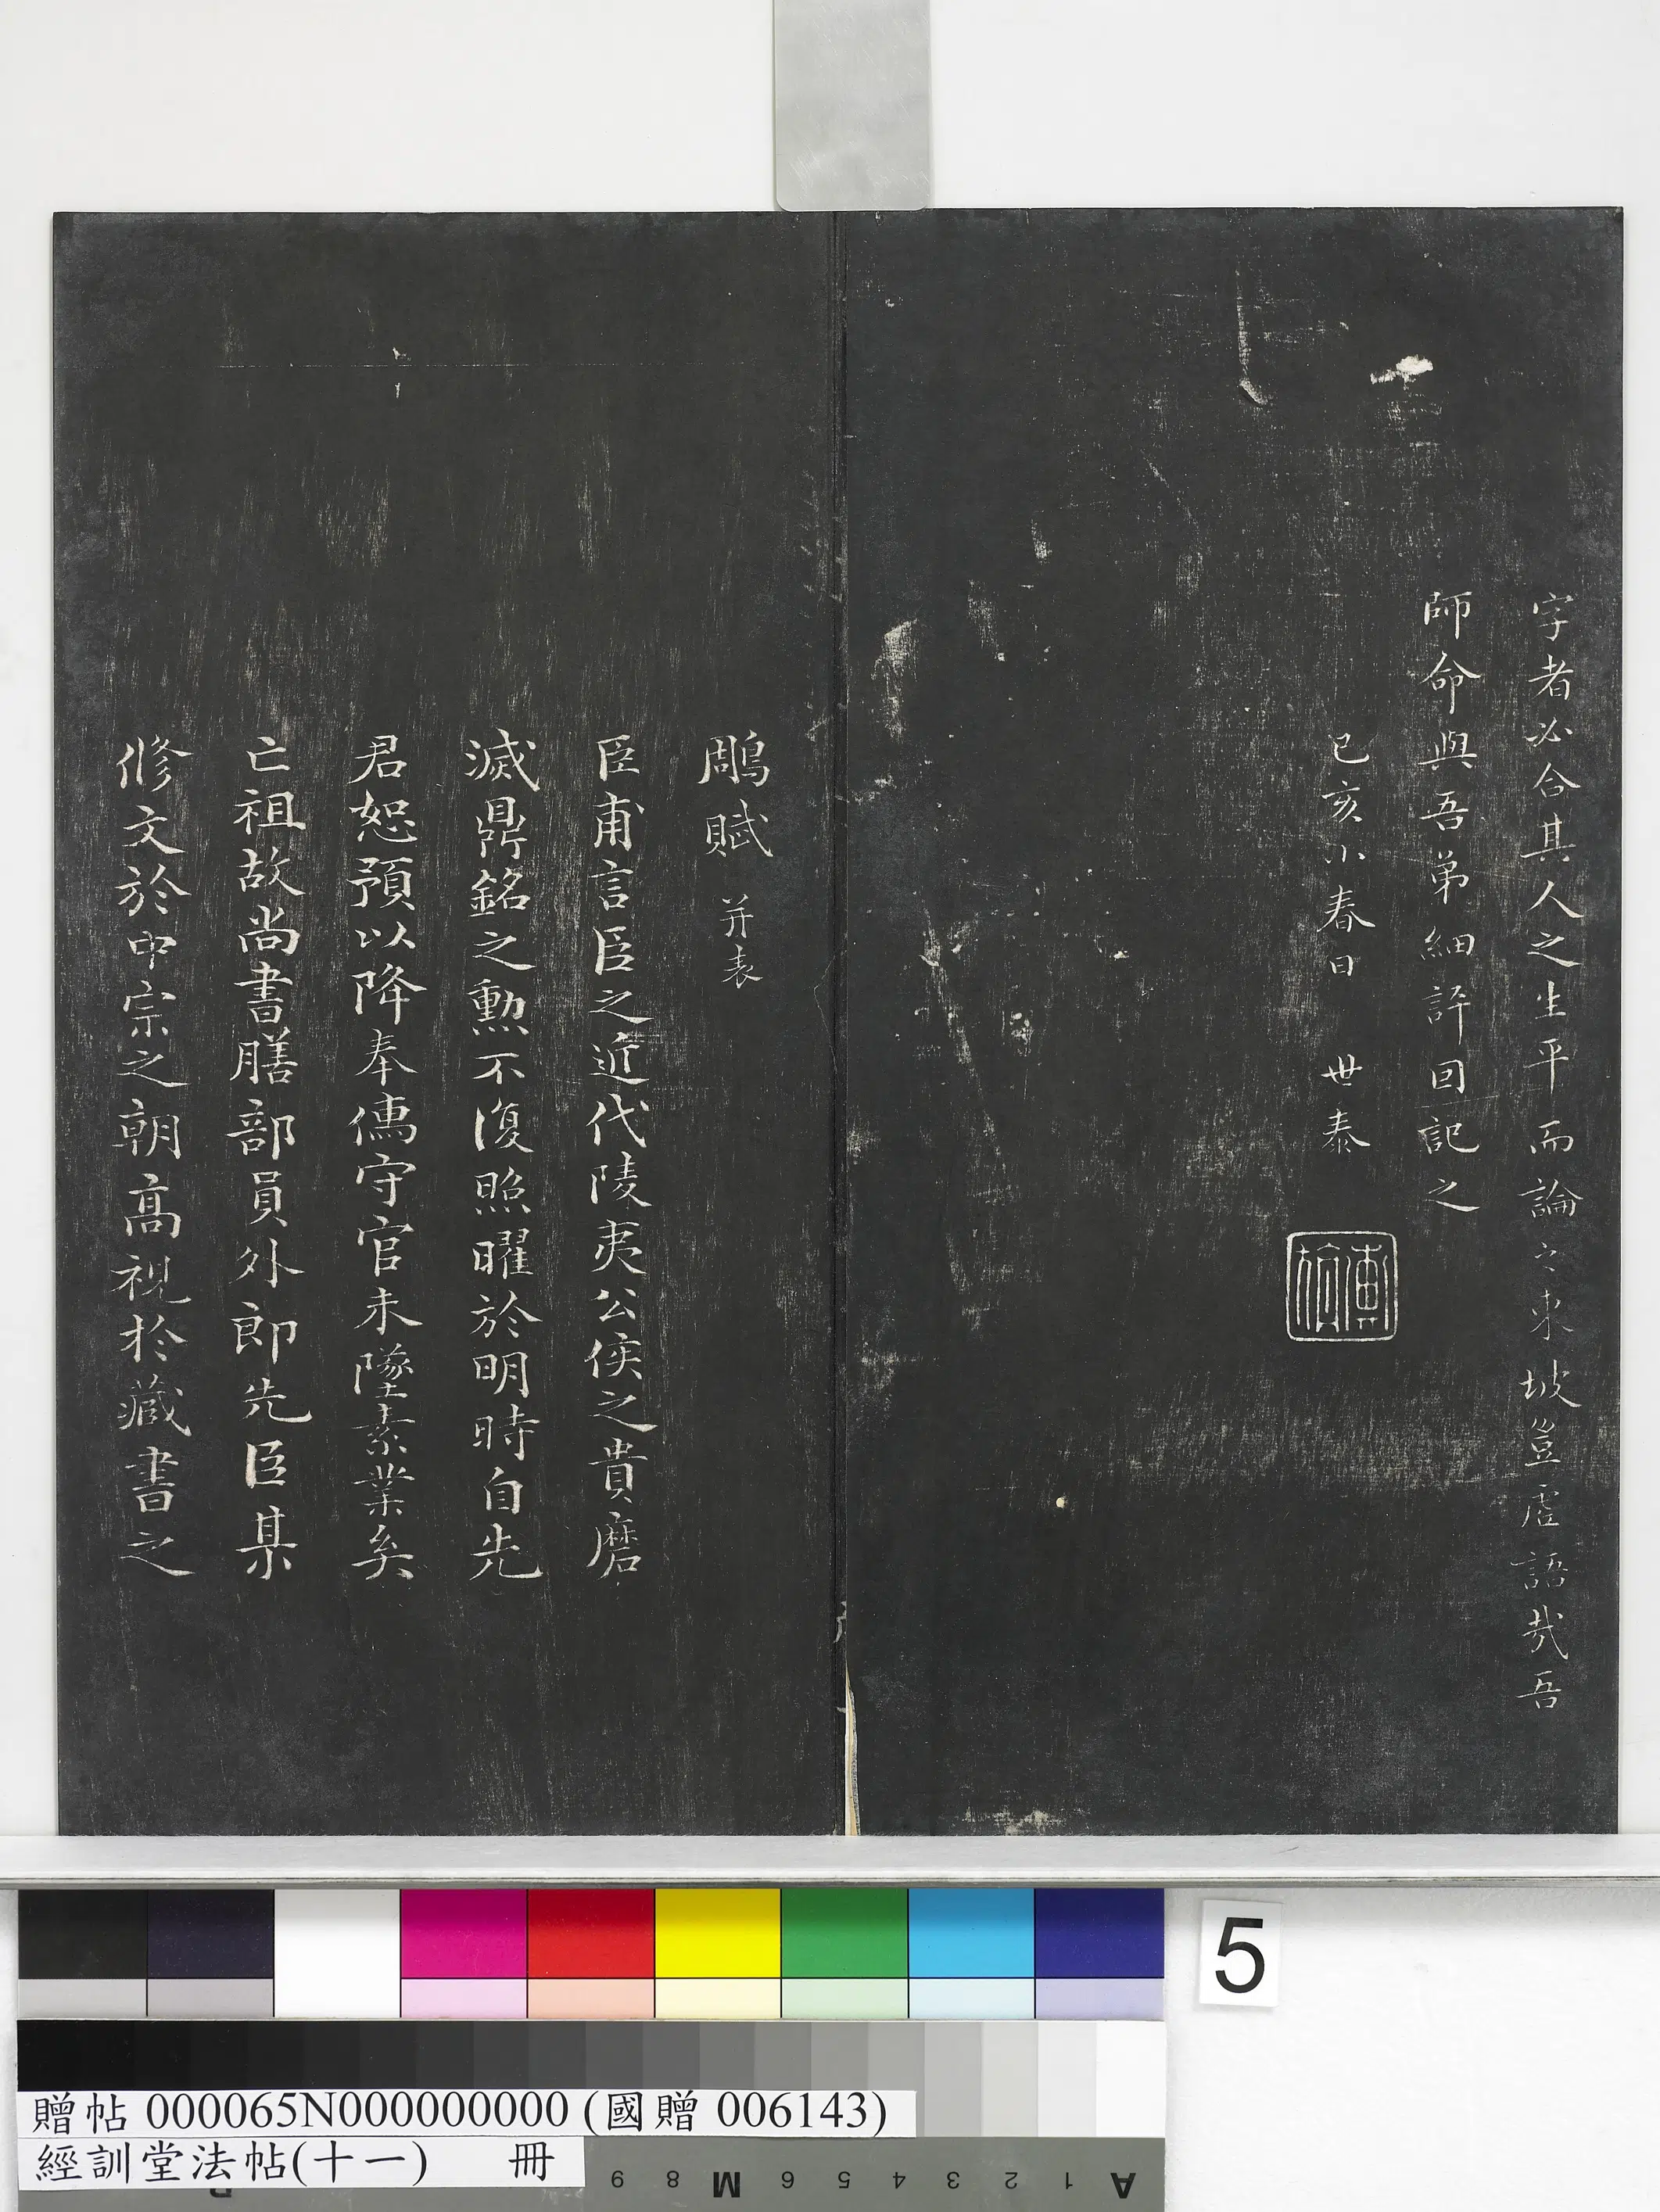 字者必合其人之生平而論之東坡豈虛語哉吾
師命與吾弟細評因記之
己亥小春日 世泰
鵰賦 并表
臣甫言臣之近代陵夷公侯之貴磨
滅鼎銘之勳不復照曜於明時自先
君恕預以降奉儒守官未墜素業矣
亡祖故尚書膳部員外郎先臣某
修文於中宗之朝高視於藏書之
5
贈帖 000065N000000000 (國贈 006143)
經訓堂法帖(十一) 冊
9 8 M 6 5 4 3 2 1 A